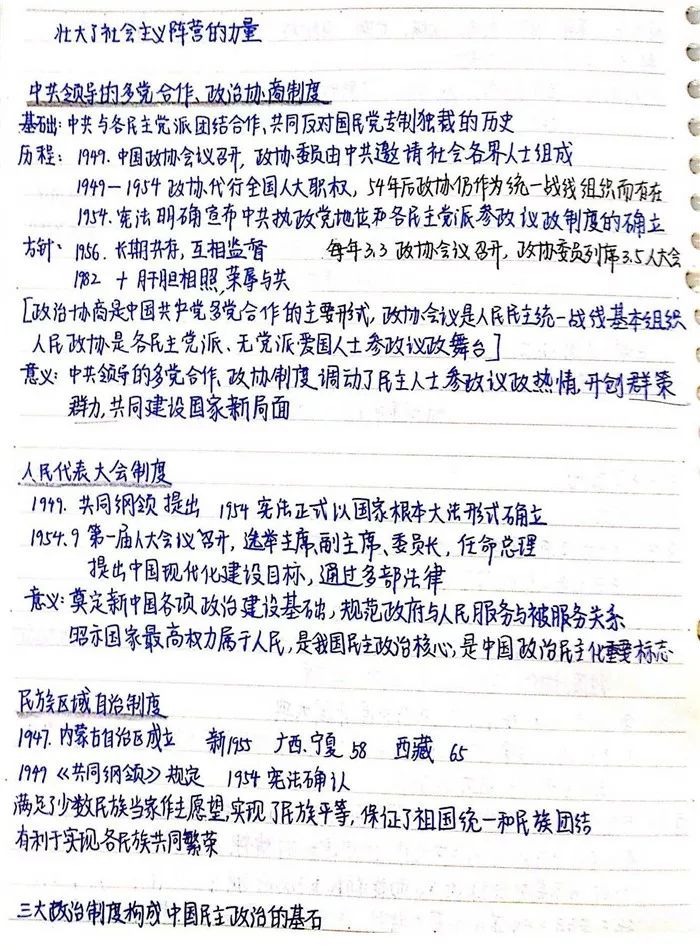 壮大了社会主义阵营的力量
中共领导的多党合作、政治协商制度
基础: 中共与各民主党派团结合作、共同反对国民党专制独裁的历史
历程: 1949. 中国政协会议召开, 政协委员由中共邀请社会各界人士组成
1949—1954 政协代行全国人大职权, 54年后政协仍作为统一战线组织而存在
1954. 宪法明确宣布中共执政党地位和各民主党派参政议政制度的确立
方针: 1956. 长期共存, 互相监督 每年3.3 政协会议召开, 政协委员列席3.5人大会
1982 + 肝胆相照, 荣辱与共
[政治协商是中国共产党多党合作的主要形式, 政协会议是人民民主统一战线基本组织
人民政协是各民主党派、无党派爱国人士参政议政舞台]
意义: 中共领导的多党合作、政协制度, 调动了民主人士参政议政热情, 开创群策
群力, 共同建设国家新局面
人民代表大会制度
1949. 共同纲领提出 1954 宪法正式以国家根本大法形式确立
1954.9 第一届人大会议召开, 选举主席、副主席、委员长, 任命总理
提出中国现代化建设目标, 通过多部法律
意义: 奠定新中国各项政治建设基础, 规范政府与人民服务与被服务关系
昭示国家最高权力属于人民, 是我国民主政治核心, 是中国政治民主化重要标志
民族区域自治制度
1947. 内蒙古自治区成立 新1955 广西、宁夏 58 西藏 65
1949《共同纲领》规定 1954 宪法确认
满足了少数民族当家作主愿望, 实现了民族平等, 保证了祖国统一和民族团结
有利于实现各民族共同繁荣
三大政治制度构成中国民主政治的基石